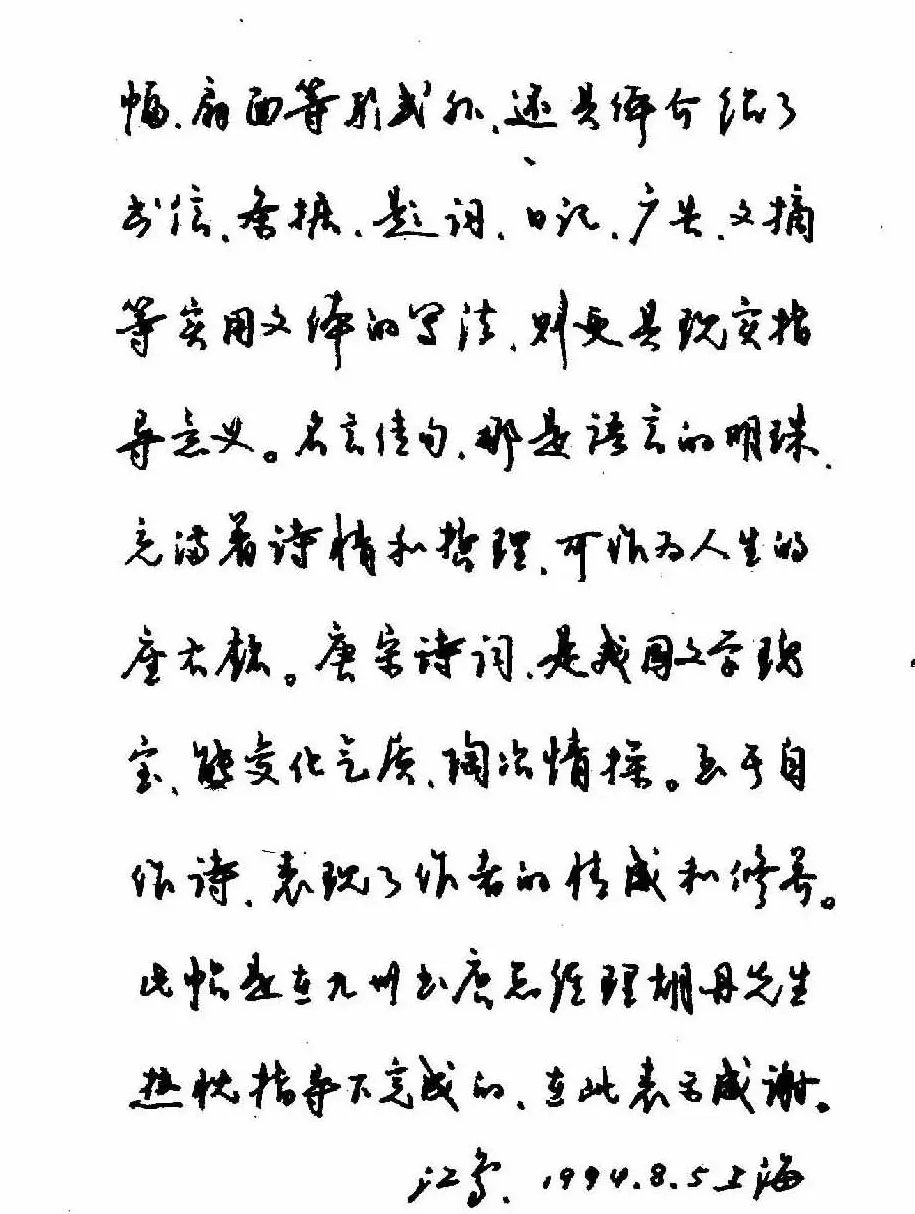 幅、扇面等形式外、还具体介绍了
书信、条据、题词、日记、广告、文摘
等实用文体的写法、则更具现实指
导意义。名言佳句、那是语言的明珠、
充满着诗情和哲理、可作为人生的
座右铭。唐宋诗词、是我国文学瑰
宝、能变化气质、陶冶情操。至于自
作诗、表现了作者的情感和修养。
此帖是在九州书店总经理胡丹先生
热忱指导下完成的、在此表示感谢。
江鸟、1994.8.5上海